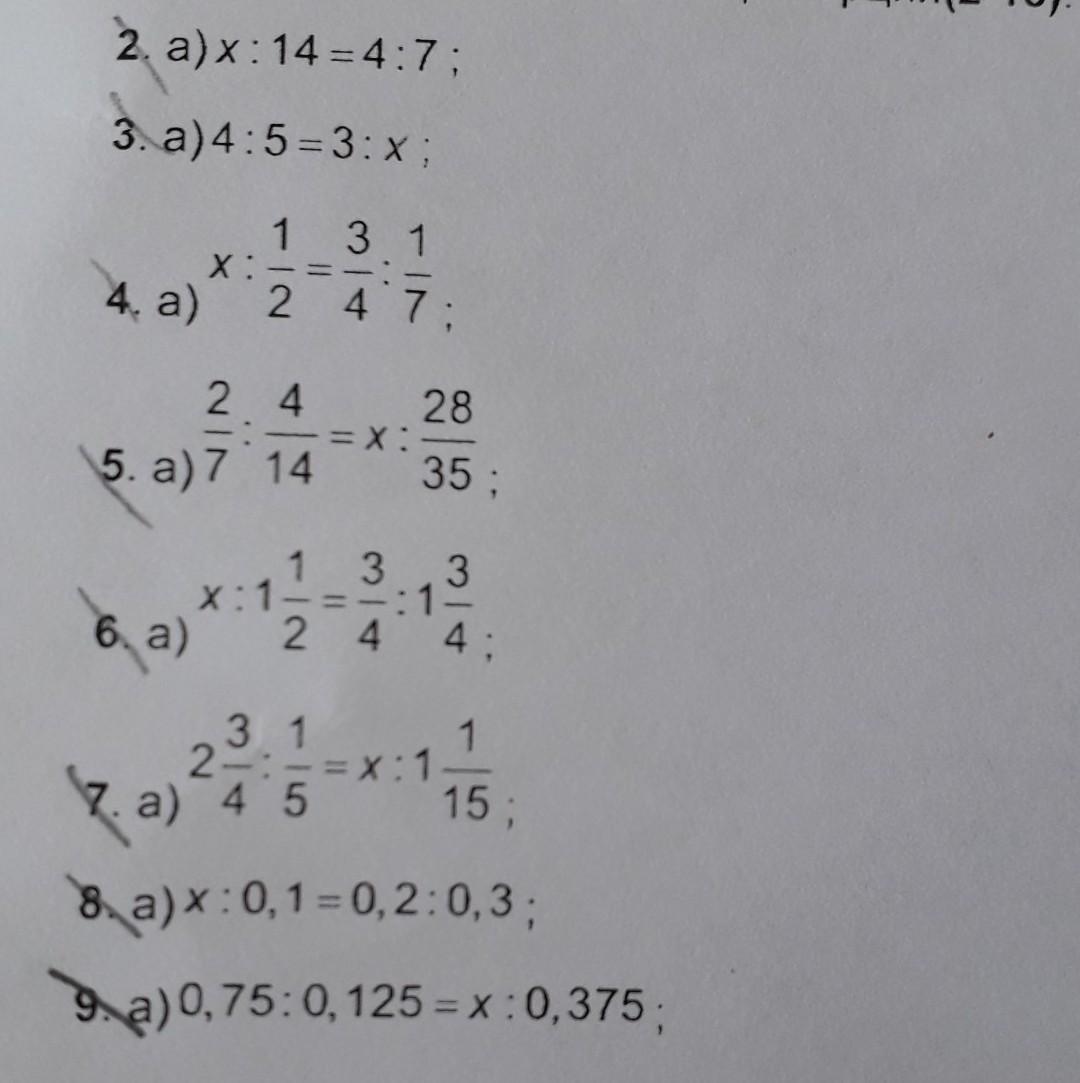 2. а) x : 14 = 4 : 7 ;
3. а) 4 : 5 = 3 : x ;
4. а) x : 1/2 = 3/4 : 1/7 ;
5. а) 2/7 : 4/14 = x : 28/35 ;
6. а) x : 1 1/2 = 3/4 : 1 3/4 ;
7. а) 2 3/4 : 1/5 = x : 1 1/15 ;
8. а) x : 0,1 = 0,2 : 0,3 ;
9. а) 0,75 : 0,125 = x : 0,375 ;